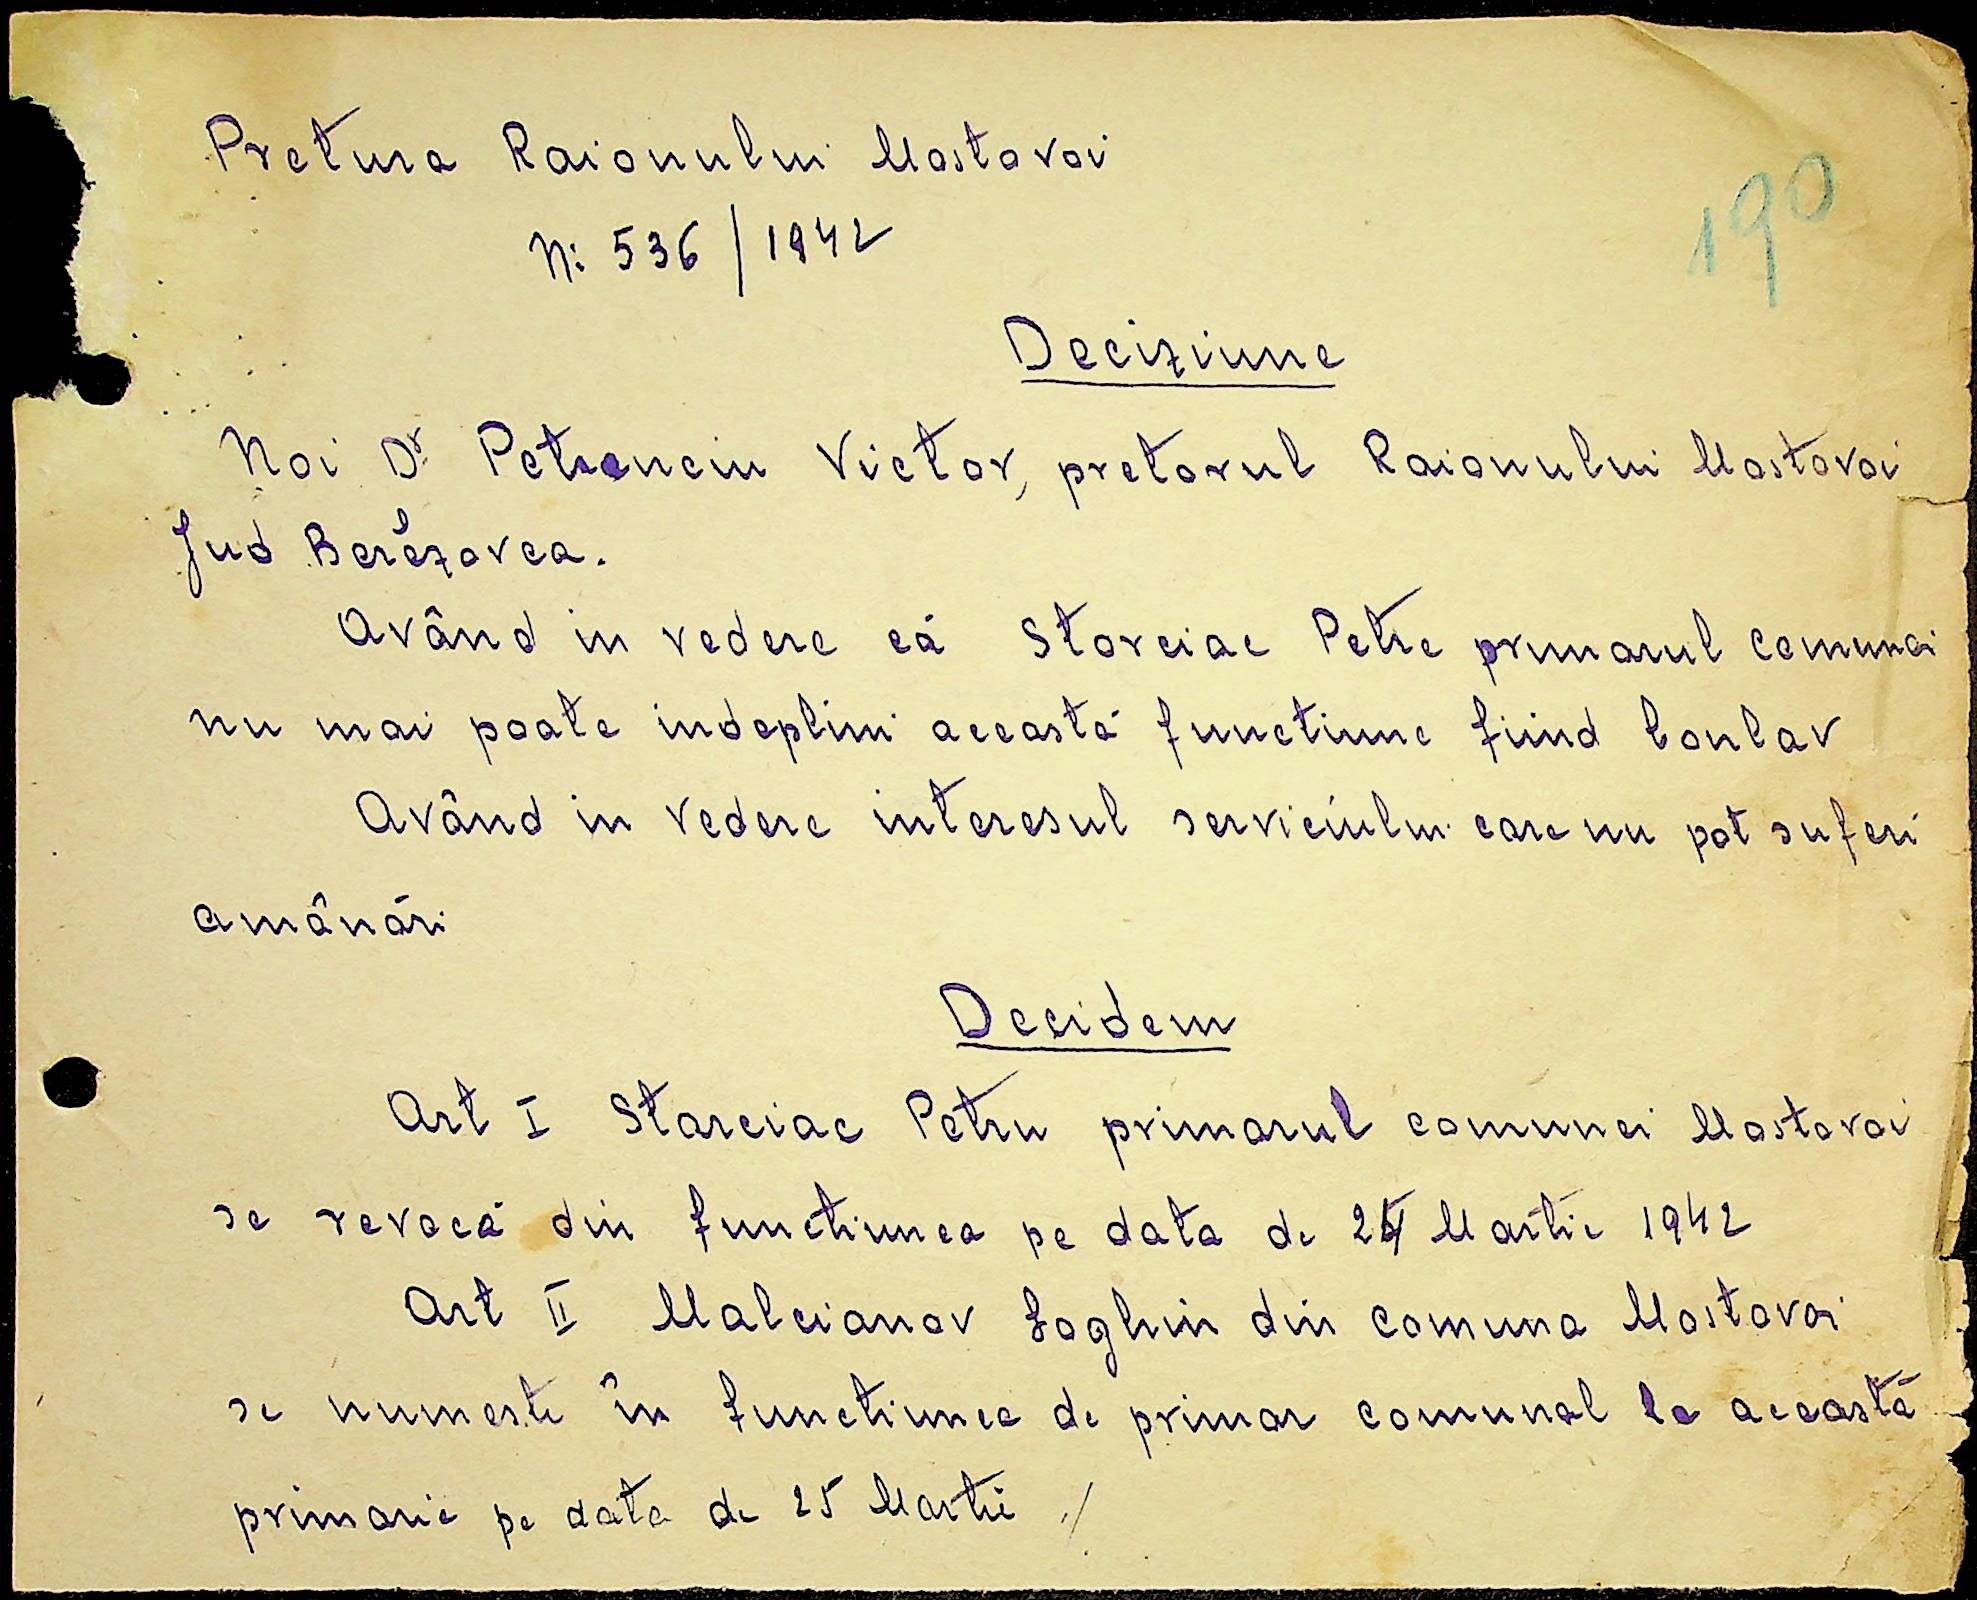 Pretura Raionului Mostovoi
190
N: 536 / 1942
Deciziune
Noi Dr. Petrenciu Victor, pretorul Raionului Mostovoi
Jud Berezovca.
Având in vedere că Storciac Petre primarul comunei
nu mai poate indeplini această functiune fiind bolnav
Având in vedere interesul serviciului care nu pot suferi
amânări
Decidem
Art I Starciac Petru primarul comunei Mostovoi
se revocă din functiunea pe data de 24 Martie 1942
Art II Malcianov Loghin din comuna Mostovoi
se numeste în functiunea de primar comunal la această
primarie pe data de 25 Martie /